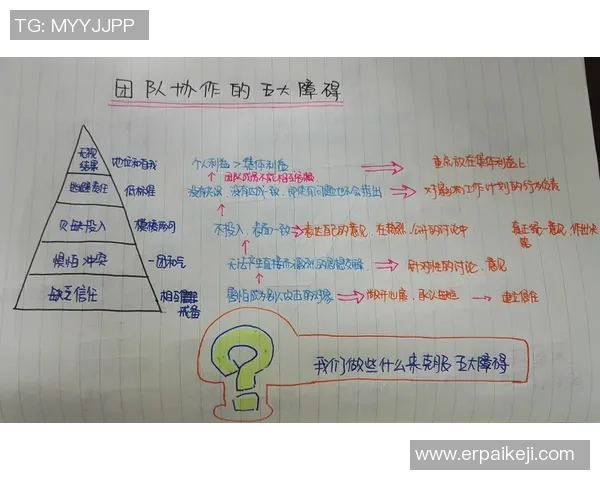 TG: MYYJJPP
团队协作的五大障碍
无视结果 地位和自我 个人利益 > 集体利益 重点放在集体利益上
团队成员不能相互
逃避责任 低标准 没有 没有达成一致，即使有问题也不会指出 对 工作计划的
欠缺投入 模棱两可 不投入，表面一致 表达自己的意见，在 公开的讨论中 真正统一意见，作出决策
惧怕冲突 一团和气 无法产生直接而激烈的思想交锋 针对性的讨论、意见
缺乏信任 相互 戒备 害怕成为别人攻击的对象 敞开心扉，承认 建立信任
?
我们做些什么来克服五大障碍
www.erpaikeji.com